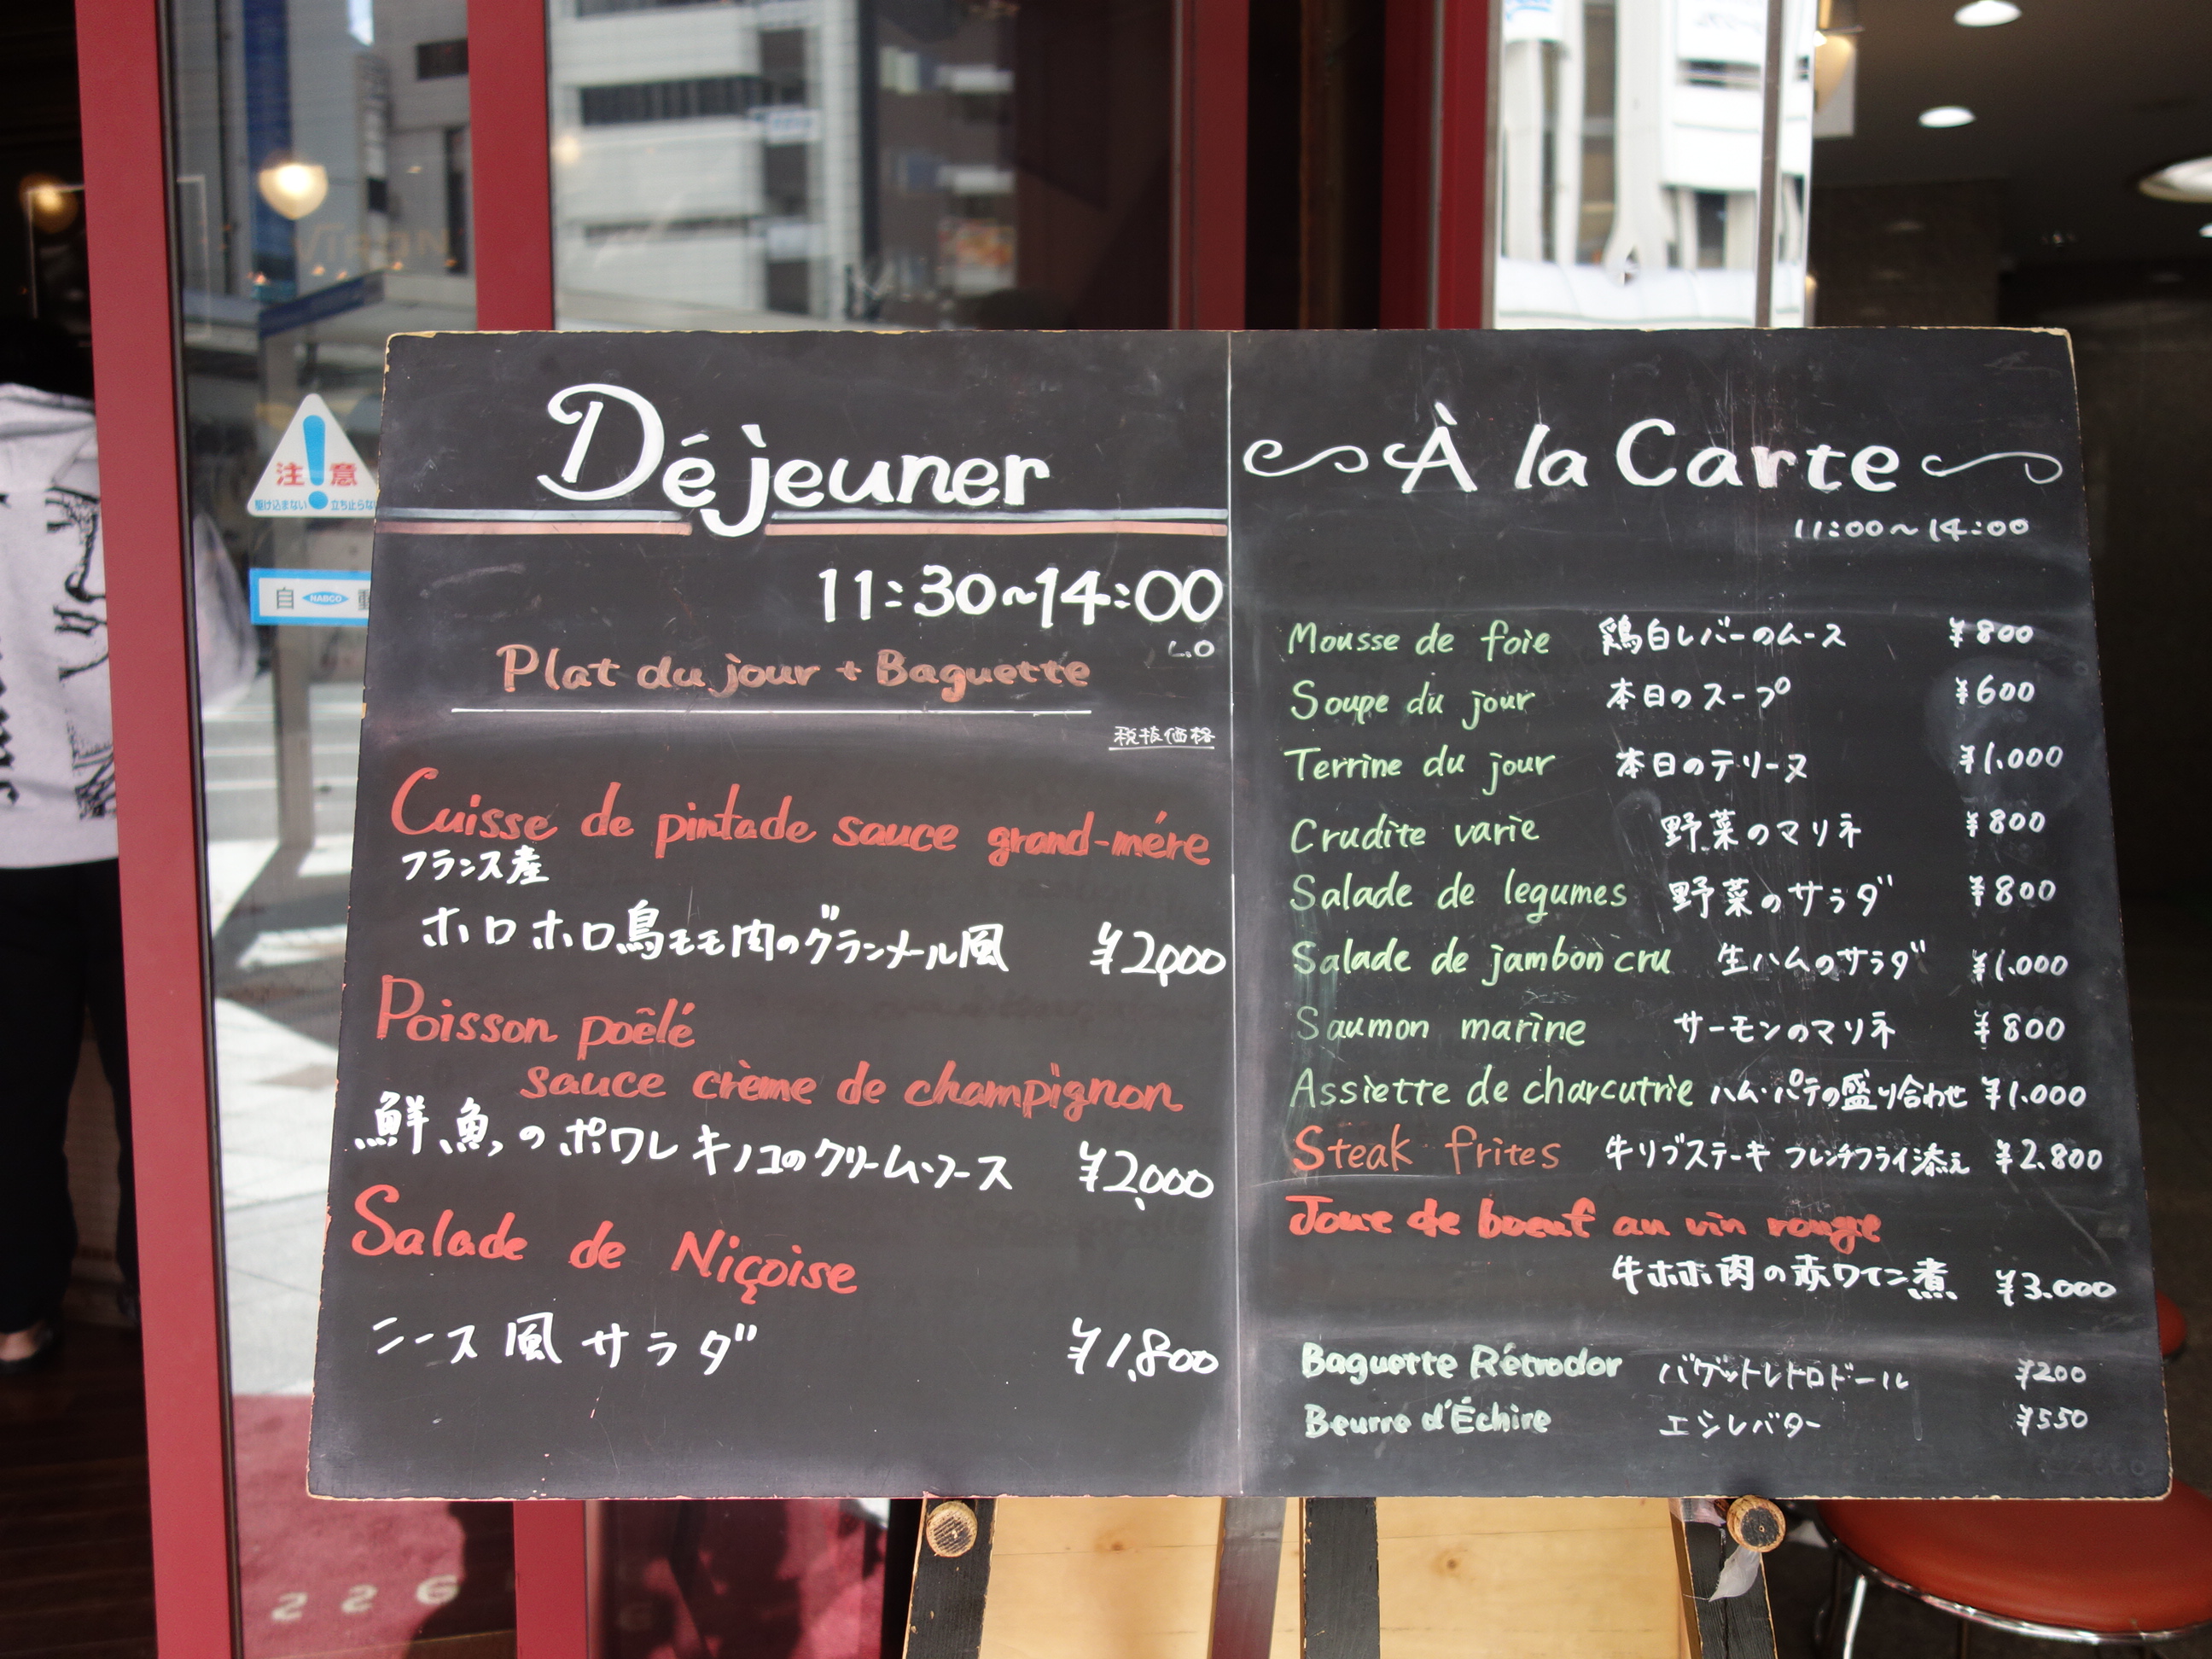 VIRON
注意
駆け込まない
自
NABCO
Déjeuner
11:30～14:00
L.O
Plat du jour + Baguette
税抜価格
Cuisse de pintade sauce grand-mére
フランス産
ホロホロ鳥モモ肉のグランメール風 ¥2,000
Poisson poêlé
sauce crème de champignon
鮮魚のポワレ キノコのクリームソース ¥2,000
Salade de Niçoise
ニース風サラダ ¥1,800
À la Carte
11:00～14:00
Mousse de foie 鶏白レバーのムース ¥800
Soupe du jour 本日のスープ ¥600
Terrine du jour 本日のテリーヌ ¥1,000
Crudite varie 野菜のマリネ ¥800
Salade de legumes 野菜のサラダ ¥800
Salade de jambon cru 生ハムのサラダ ¥1,000
Saumon marine サーモンのマリネ ¥800
Assiette de charcutrie ハム・パテの盛り合わせ ¥1.000
Steak frites 牛リブステーキ フレンチフライ添え ¥2.800
Joue de boeuf au vin rouge
牛ホホ肉の赤ワイン煮 ¥3.000
Baguette Rétrodor バゲットレトロドール ¥200
Beurre d'Échire エシレバター ¥550
226